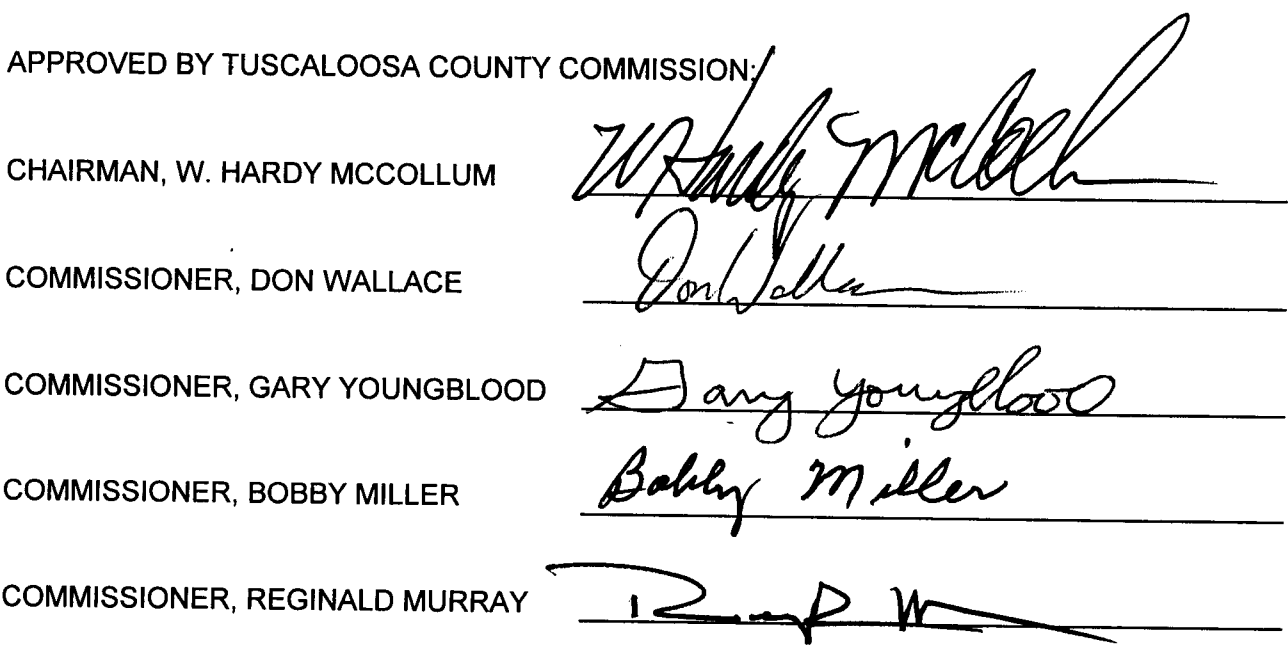 APPROVED BY TUSCALOOSA COUNTY COMMISSION:
CHAIRMAN, W. HARDY MCCOLLUM W Hardy McCollum
COMMISSIONER, DON WALLACE Don Wallace
COMMISSIONER, GARY YOUNGBLOOD Gary Youngblood
COMMISSIONER, BOBBY MILLER Bobby Miller
COMMISSIONER, REGINALD MURRAY